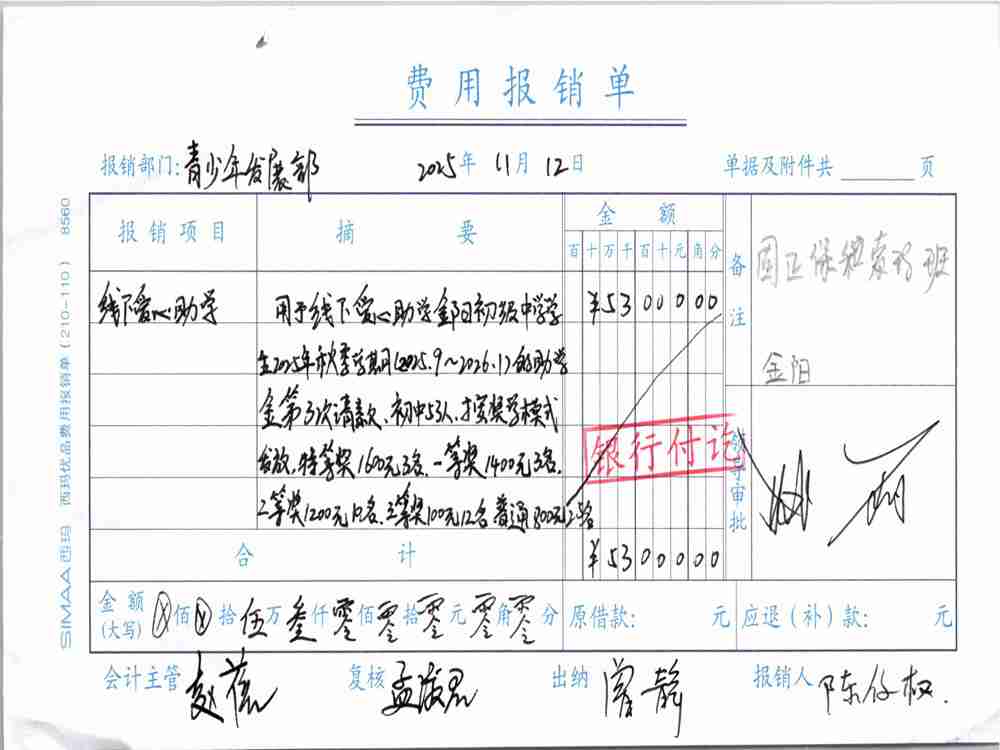 费用报销单
报销部门：青少年发展部 2025年 11月 12日 单据及附件共 页
报销项目 摘要 金额 备注
百十万千百十元角分
线下爱心助学 用于线下爱心助学金阳初级中学学 ¥5300000
生2025年秋季学期(2025.9~2026.1)的助学
金第3次请款、初中53人.按奖学模式
发放.特等奖1600元3名.一等奖1400元3名.
二等奖1200元 名.三等奖 00元12名 普通800元 名
金阳
银行付讫
领导审批
合计 ¥5300000
金额(大写) ⊗佰⊗拾伍万叁仟零佰零拾零元零角零分 原借款： 元 应退(补)款： 元
会计主管 赵蓓 复核 孟淑君 出纳 曾静 报销人 陈仔权.
SIMAA西玛 西玛优品费用报销单(210-110) 8560